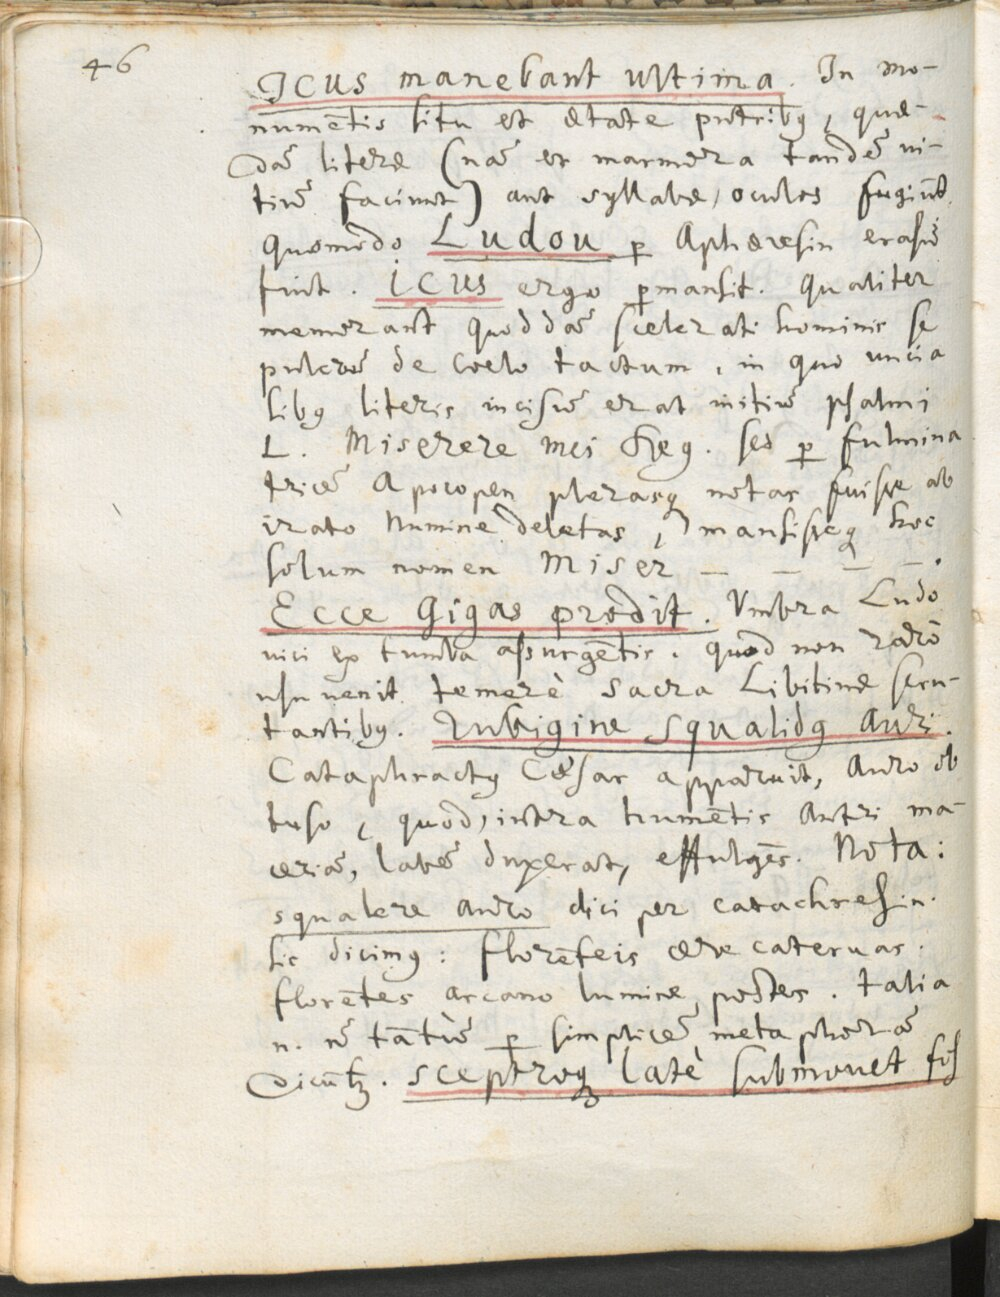 46
ICUS manebant ultima. In mo-
numētis situ et ętate putribꝰ, quę-
dā literę (nā et marmora tandē ui-
tiū faciunt) aut syllabę, oculos fugiūt.
Quomodo Ludou ꝑ Aphæresin erasū
fuit. ICUS ergo ꝑmansit. Qualiter
memorant quoddā scelerati hominis se
pulcrū de Coelo tactum, in quo uncia
libꝰ literis incisū erat initiū psalmi
L. Miserere mei Deꝰ. sed ꝑ fulmina
tricē Apocopen plerasqꝫ notas fuisse ab
irato Numine deletas, mansisseqꝫ hoc
solum nomen Miser _ _ _ _.
Ecce Gigas prodit. Umbra Ludo
uici ex tumba assurgētis. quod non rarò
usu uenit temerè sacra Libitinę scru-
tantibꝰ. Rubigine squalidꝰ Auri.
Cataphractꝰ Cæsar apparuit, Auro ob
tuso, quod, intra humētis Antri ma-
ceriā, labē duxerat, effulgēs. Nota:
squalere auro dici per catachresin.
sic dicimꝰ: florēteis ære cateruas.
florētes arcano lumine postes. talia
n. nō tātū ꝑ simplicē metaphorā
dicūtꝫ. sceptroqꝫ latè submouet fos